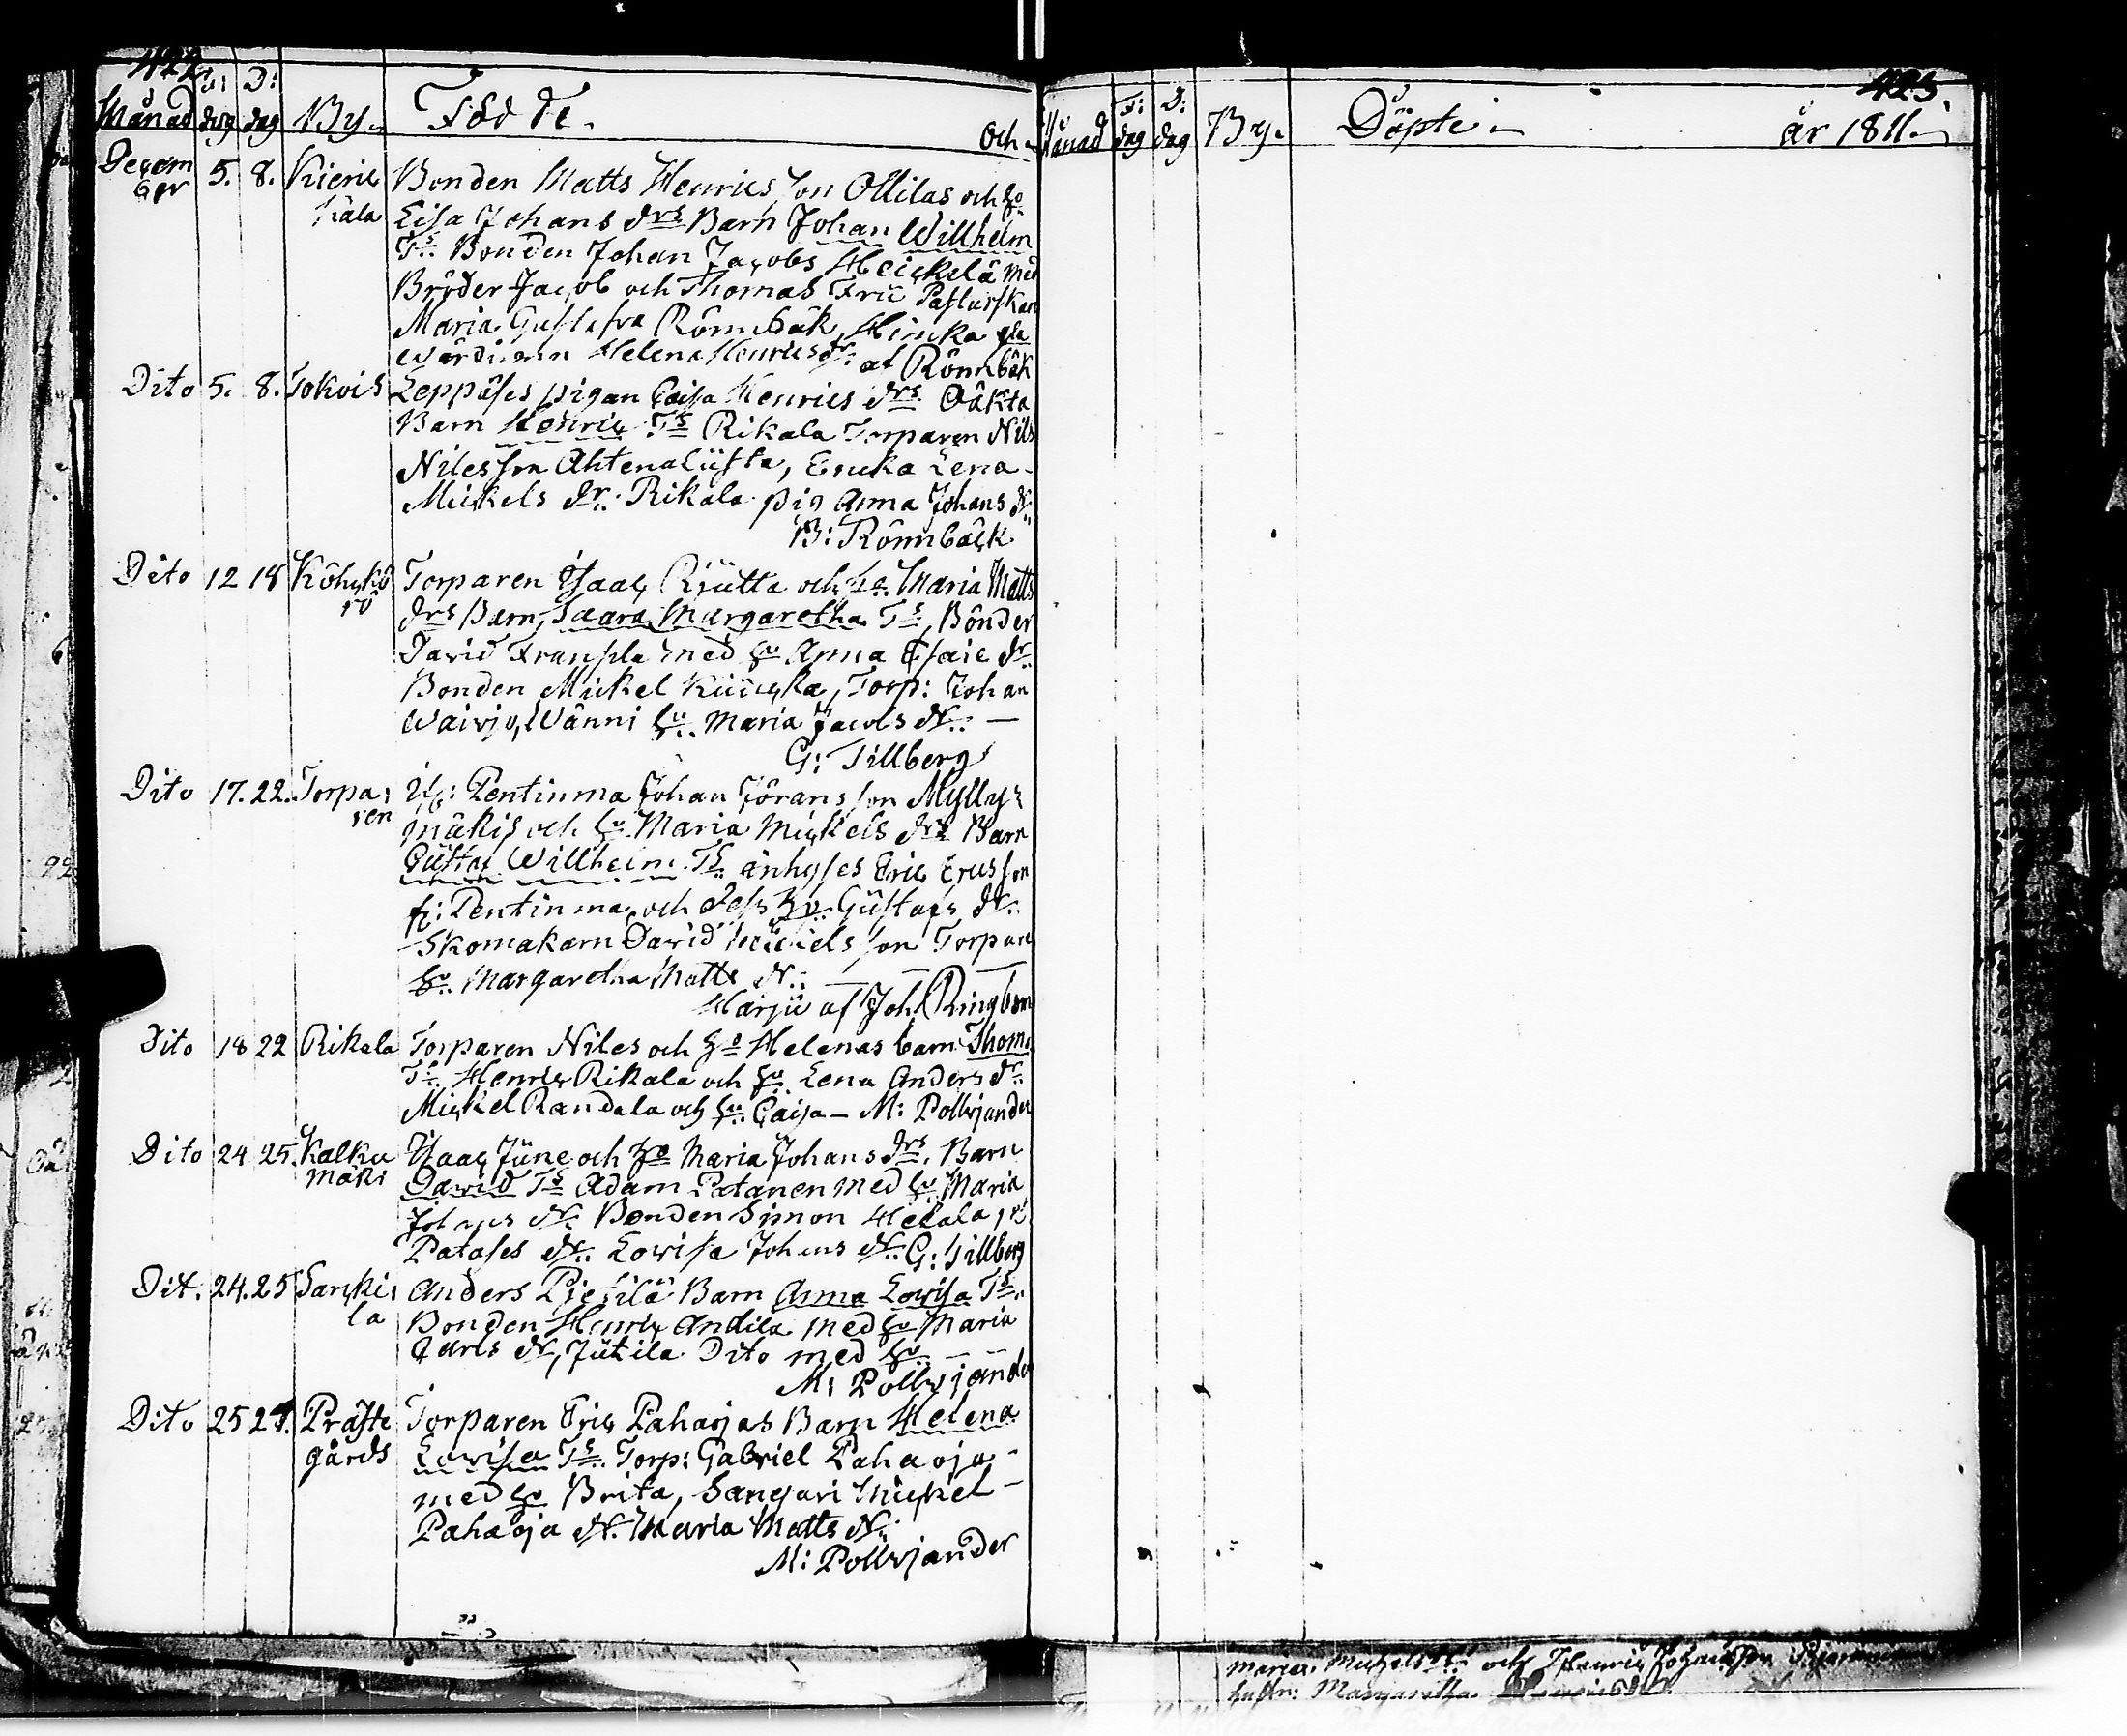 422
Månad F: dag D: dag By. Födde. och
Decem 5. 8. Kierik Bonden Matts Henrics son Ollilas och ho
ber kala Lisa Johans drs Barn Johan Willhelm
Ts Bonden Johan Jacobs Heickelä med
Bröder Jacob och Thomas Fru Pastorskan
Maria Rönnbäk,
Helena Henricsdr af Rönnbäk
Dito 5. 8. Tokois pigan Caisa Henrics drs
Barn Henric Ts Rikala Torparen Nils
Nilesson Ahtenalüsta, Ericka Lena
Mickels dr. Rikala pig Anna Johans dr
B: Rönnbäck
Dito 12 18 Torparen Isaac och ho Maria Matts
drs Barn, Saara Margaretha Ts, Bönder
David Franssila med hu Anna Esaie dr
Bonden Mickel Torp: Johan
Wänni hu. Maria Jacobs dr.
G: Tillberg
Dito 17. 22. Torpa, Pentinma Johan Jörans son Mylly-
ren mäkis och hu Maria Mickels drs Barn
Güstaf Willhelm Ts inhyses Eric Ericsson
fr: Pentinma, och dess hu. Güstafs dr.
Skomakarn David Mickels son Torpare
hu. Margaretha Matts dr.
Harju af Joh. Ringbom
Dito 18 22 Rikala Torparen Niles och ho Helenas barn Thom
Ts. Henric Rikala och hu Lena Anders dr
Mickel Randala och hu. Caisa — M: Pollvjander
Dito 24 25. Kalku Isaac Jüne och ho Maria Johans drs. Barn
mäki David Ts Adam Patanen med hu. Maria
Johans dr. Bonden Simon Heikala,
Patases dr. Lovisa Johans dr. G: Tillberg
Dit. 24. 25 Sarcki, Anders Pietilä Barn Anna Lovisa Ts.
la Bonden Henric Andila med hu Maria
Carls dr, Jütila Dito med hu.
M: Pollvjander
Dito 25 27. Präste Torparen Eric Pahaojas Barn Helena
gårds Lovisa Ts. Torp: Gabriel Pahaoja
med hu Brita, Sangari Mickel
Pahaoja dr. Maria Matts dr.
M: Pollvjander
423
Månad F: dag D: dag By. Döpte år 1811.
Maria Mickels dr och Henric Johansson
hustru Margaretha